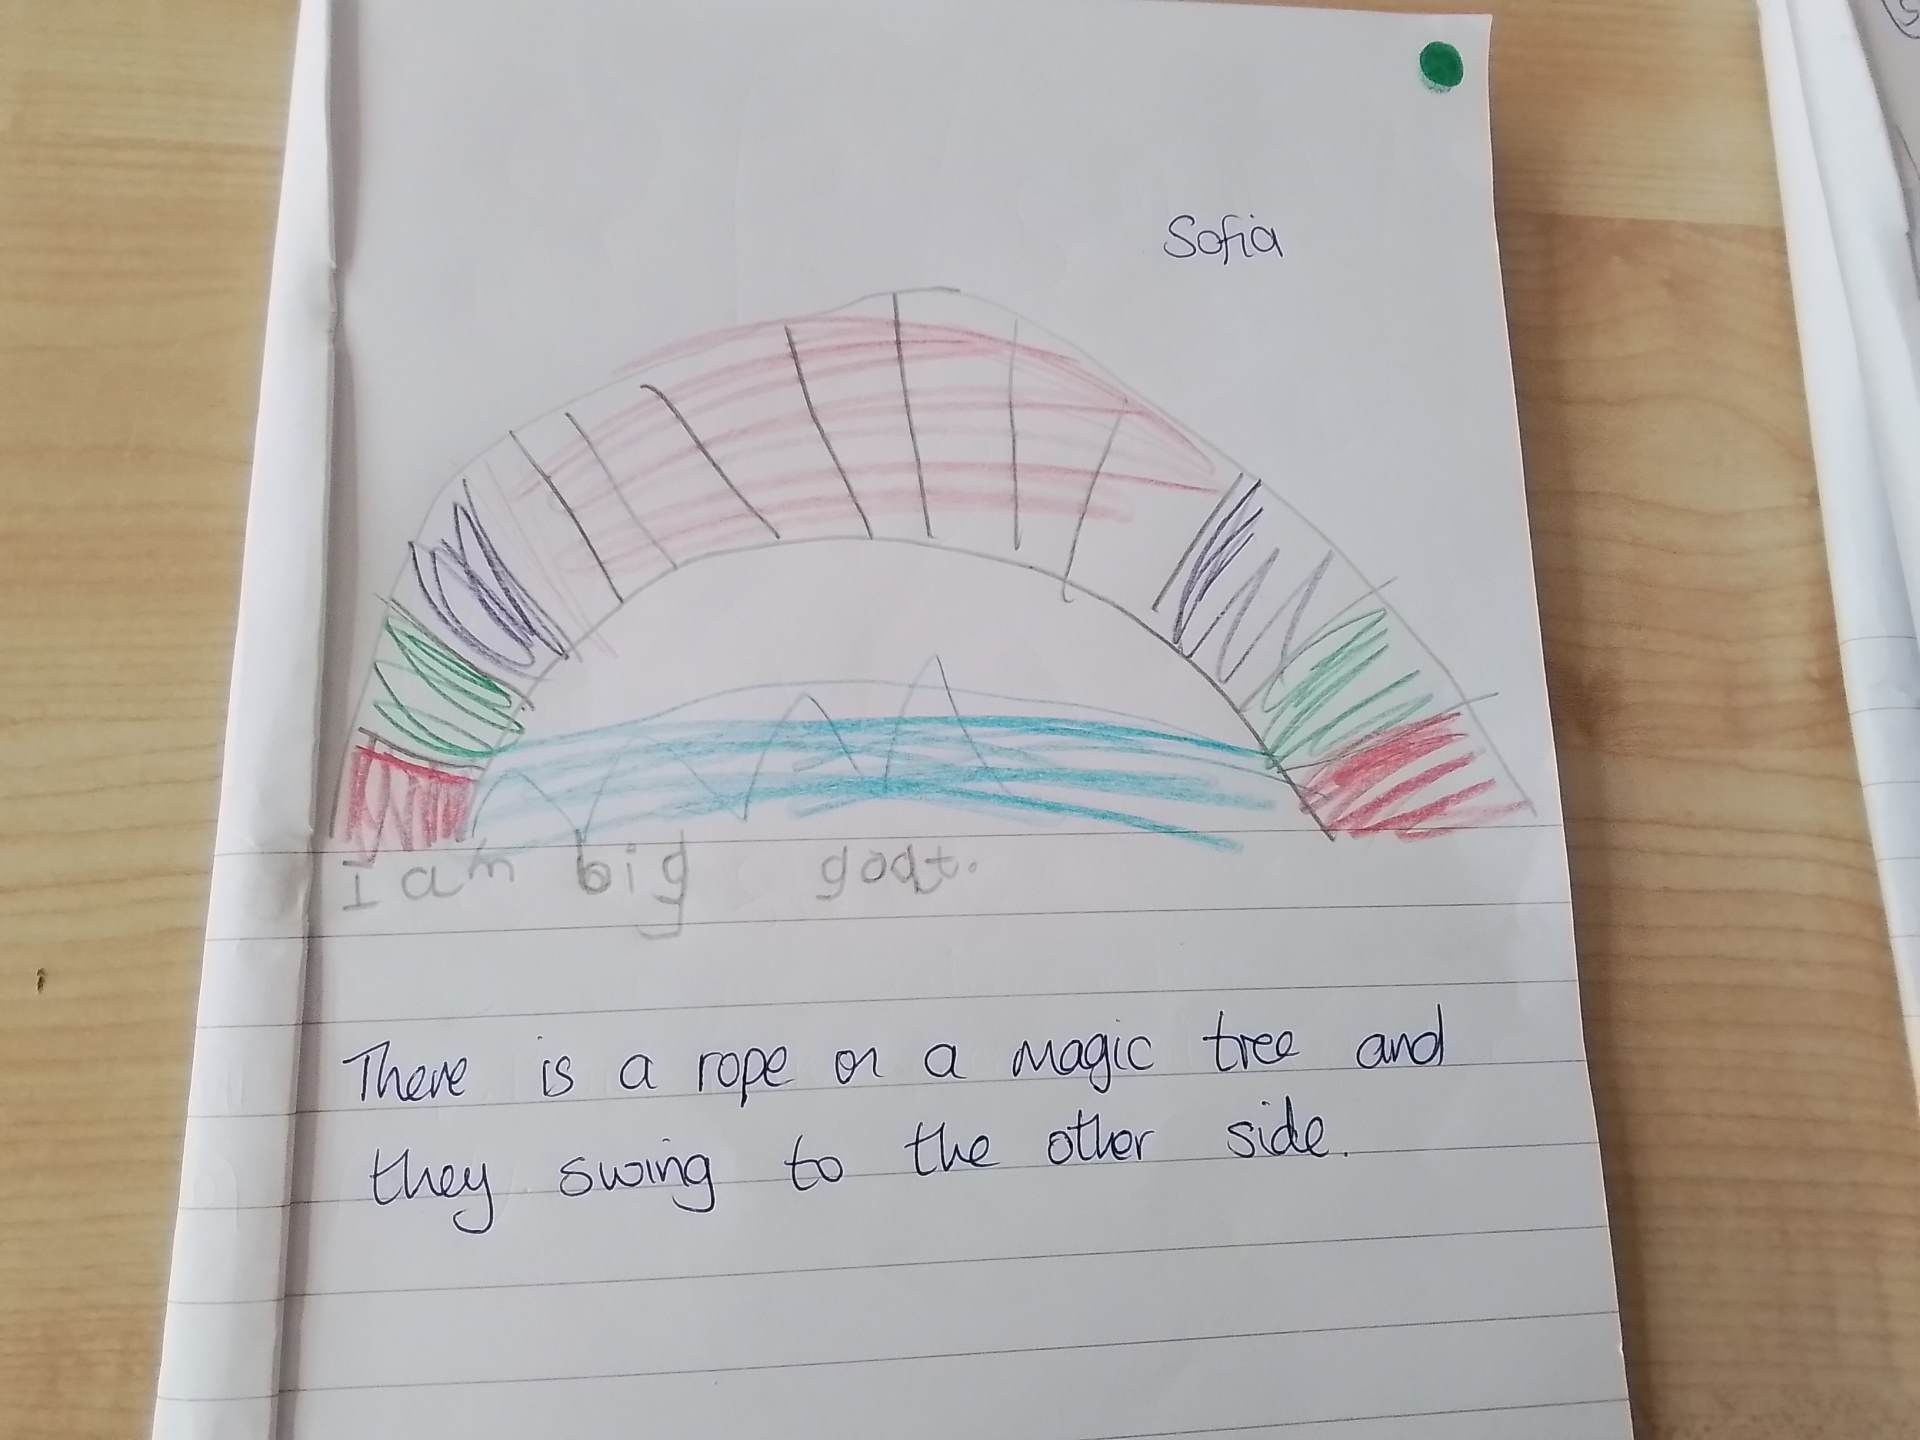 Sofia
I am big goat.
There is a rope on a magic tree and
they swing to the other side.